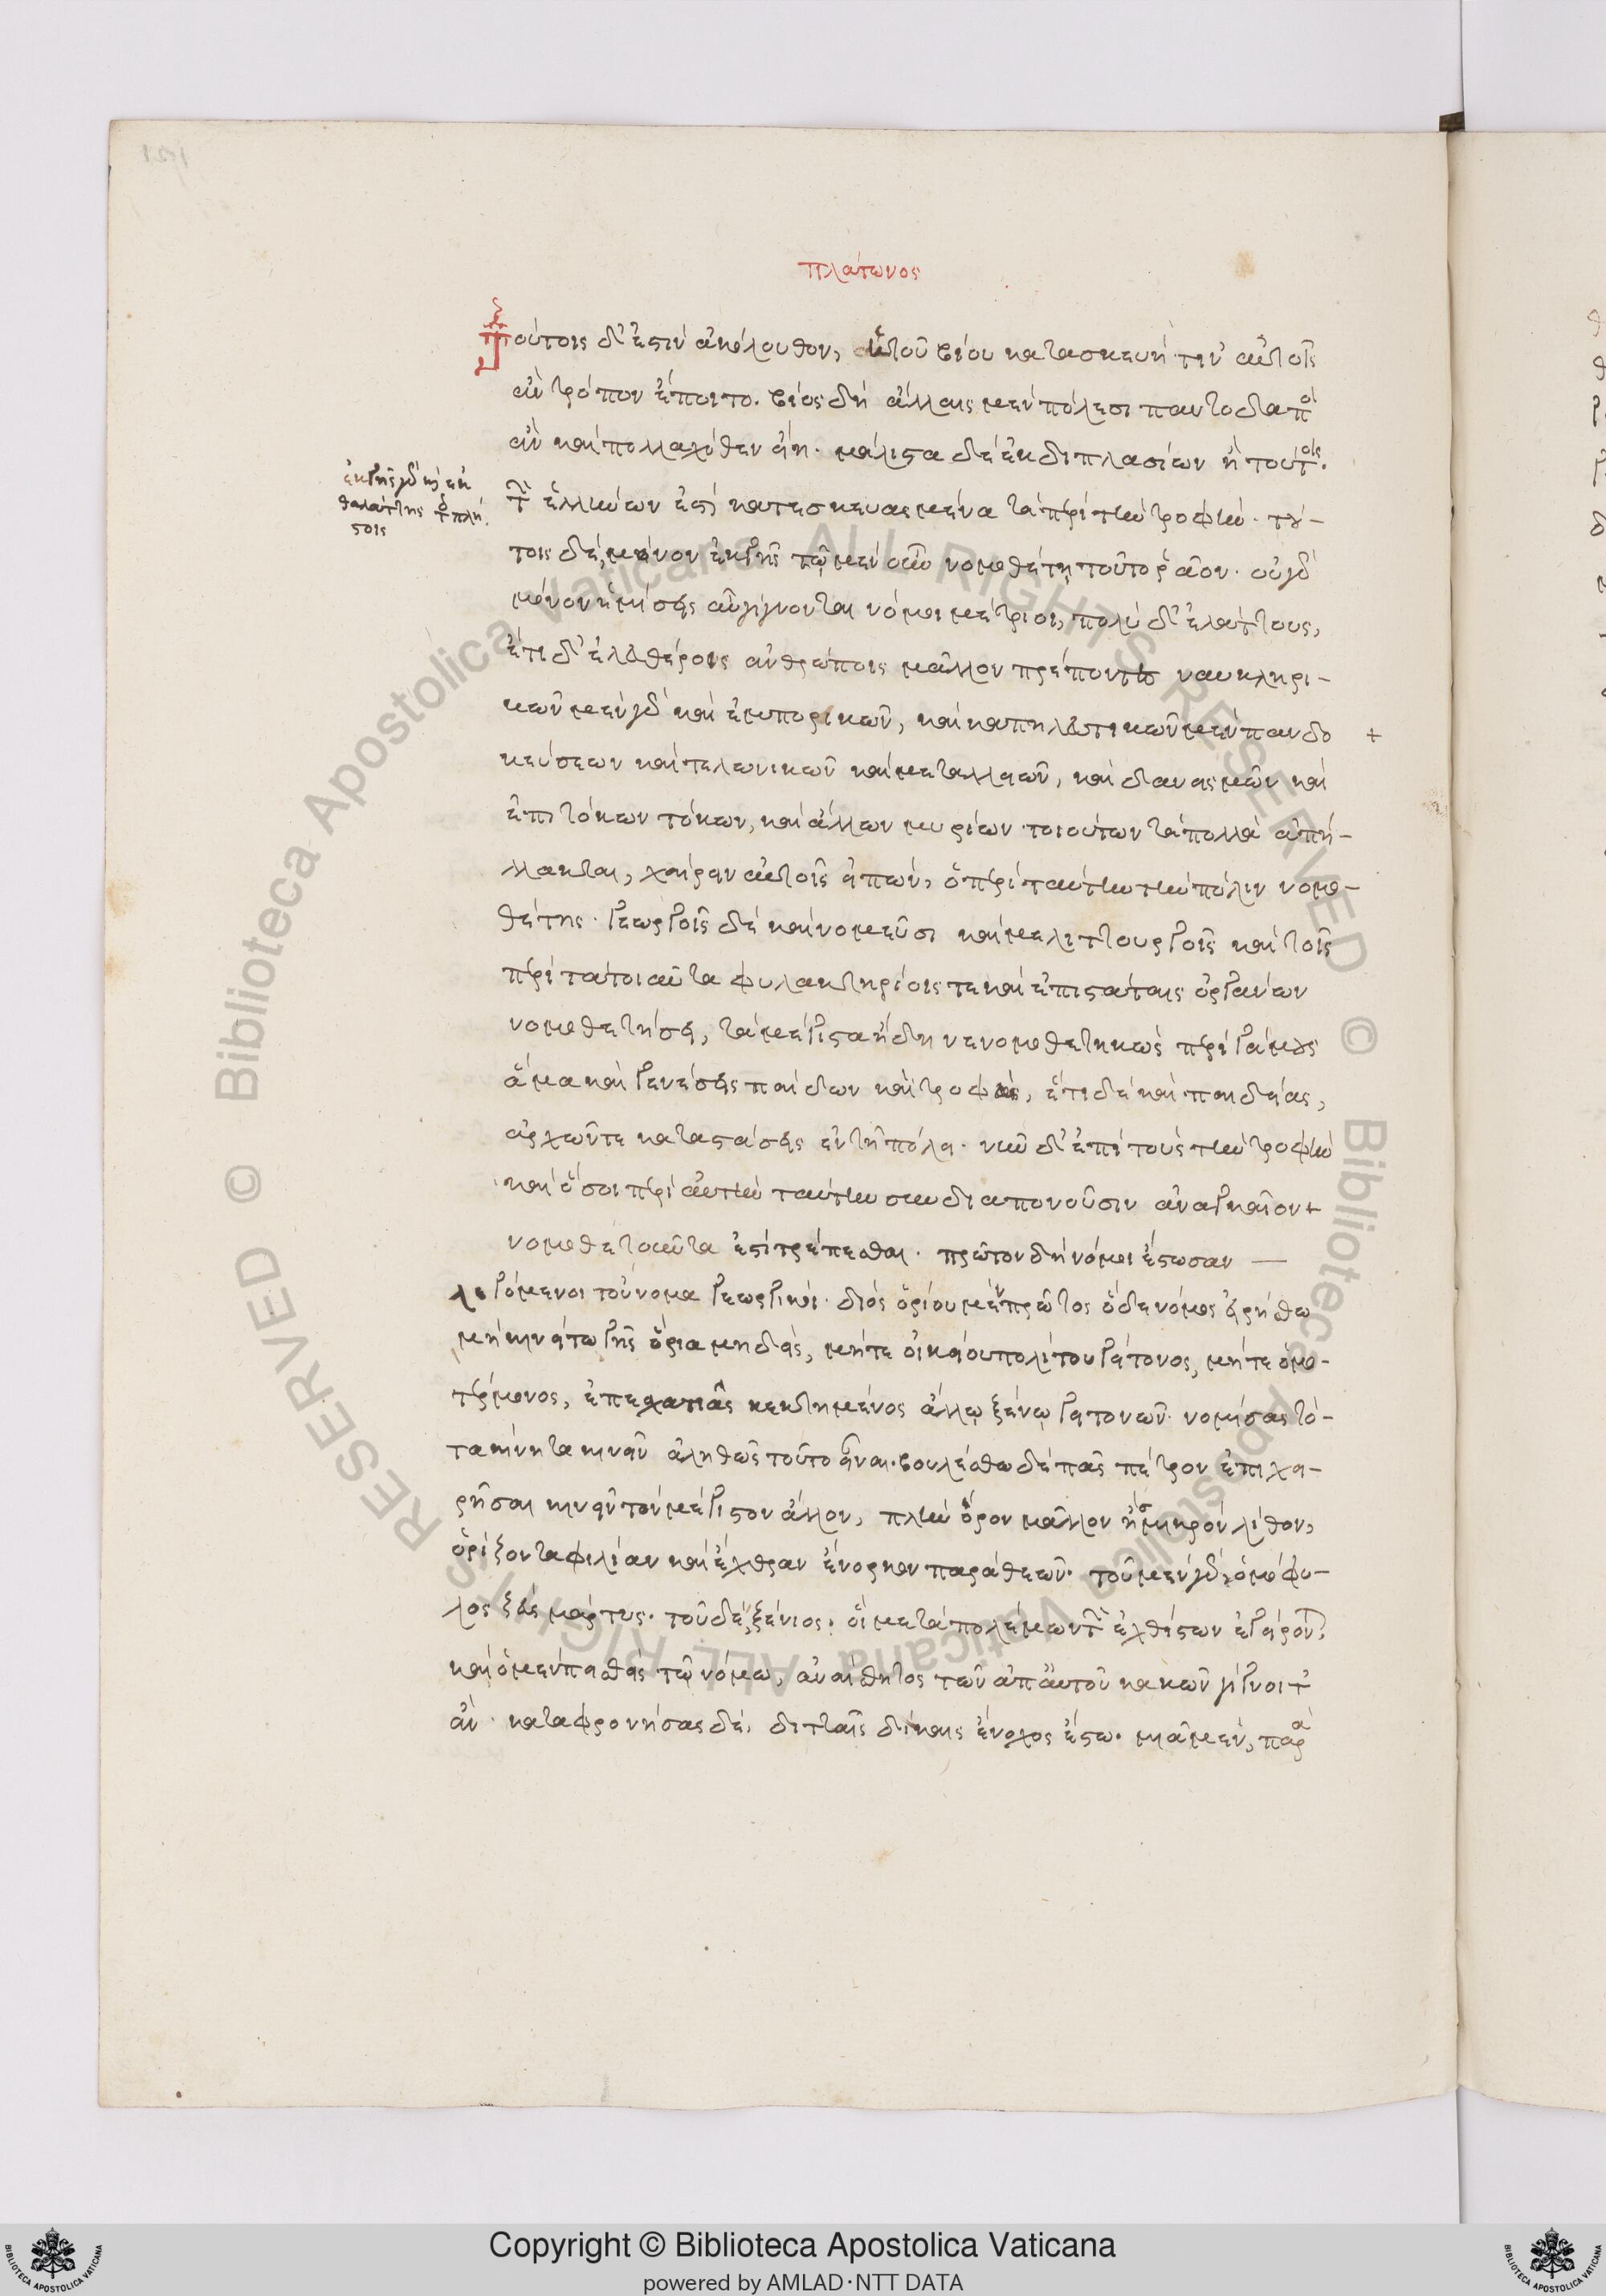 πλάτωνος
Τούτοις δ' ἐστὶν ἀκόλουθον, ἡ τοῦ βίου κατασκευὴ τίν' αὐτοῖς
ἂν τρόπον ἕποιτο. βίος δὴ ἄλλαις μὲν πόλεσι παντοδαπὸ
ἂν καὶ πολλαχόθεν εἴη. μάλιστα δὲ ἐκ διπλασίων ἢ τούτοις.
τ ἑλλήνων ἐστὶ κατεσκευασμένα τὰ περὶ τὴν τροφὴν. τού-
τοις δὲ, μόνον ἐκ γῆς τῷ μὲν οὖν νομοθέτῃ τοῦτο ῥᾶον. οὐ γὰρ
μόνον ἡμίσεις αὖ γίγνονται νόμοι μέτριοι, πολὺ δ' ἐλάττους,
ἔτι δ' ἐλευθέροις ἀνθρώποις μᾶλλον πρέποντες ναυκληρι-
κῶν μὲν γὰρ καὶ ἐμπορικῶν, καὶ καπηλευτικῶν μὲν πανδο
κεύσεων καὶ τελωνικῶν καὶ μεταλλειῶν, καὶ δανεισμῶν καὶ
ἐπιτόκων τόκων, καὶ ἄλλων μυρίων τοιούτων τὰ πολλὰ ἀπή-
λλακται, χαίρειν αὐτοῖς εἰπὼν, ὁ περὶ ταύτην τὴν πόλιν νομο-
θέτης. γεωργοῖς δὲ καὶ νομεῦσι καὶ μελιττουργοῖς καὶ τοῖς
περὶ τὰ τοιαῦτα φυλακτηρίοις τε καὶ ἐπιστάταις ὀργάνων
νομοθετήσει, τὰ μέγιστα ἤδη νενομοθετηκὼς περὶ γάμους
ἅμα καὶ γενέσεις παίδων καὶ τροφὰς, ἔτι δὲ καὶ παιδείας,
ἀρχῶν τε καταστάσεις ἐν τῇ πόλει. νῦν δ' ἐπὶ τοὺς τὴν τροφὴν
καὶ ὅσοι περὶ αὐτὴν ταύτην συνδιαπονοῦσιν ἀναγκαῖον +
νομοθετοῦντα ἐστὶ τρέπεσθαι. πρῶτον δὴ νόμοι ἔστωσαν —
λεγόμενοι τοὔνομα γεωργικοί. διὸς ὁρίου μὲν πρῶτος ὅδε νόμος εἰρήσθω
μὴ κινείτω γῆς ὅρια μηδεὶς, μήτε οἰκείου πολίτου γείτονος, μήτε ὁμο-
τέρμονος, ἐπ' ἐσχατιᾶς κεκτημένος ἄλλῳ ξένῳ γειτονῶν. νομίσας τὸ-
τακίνητα κινεῖν ἀληθῶς τοῦτο εἶναι. βουλέσθω δὲ πᾶς πέτρον ἐπιχει-
ρῆσαι κινεῖν τὸν μέγιστον ἄλλον, πλὴν ὅρον μᾶλλον ἢ σμικρὸν λίθον,
ὁρίζοντα φιλίαν καὶ ἔχθραν ἔνορκον παρὰ θεῶν. τοῦ μὲν γὰρ, ὁμόφυ-
λος ζεὺς μάρτυς. τοῦ δὲ, ξένιος. οἳ μετὰ πολέμων τ ἐχθίστων ἐγείρον.
καὶ ὁ μὲν πεισθεὶς τῷ νόμῳ, ἀναίσθητος τῶν ἀπ' αὐτοῦ κακῶν γίγνοιτ
ἄν. καταφρονήσας δὲ, διτταῖς δίκαις ἔνοχος ἔστω. μιᾷ μὲν, παρὰ
ἐκ γῆς γὰρ κ ἐκ
θαλάττης τ πλεί.
στοις
+
Copyright © Biblioteca Apostolica Vaticana
powered by AMLAD·NTT DATA
© Biblioteca Apostolica Vaticana ALL RIGHTS RESERVED
© Biblioteca Apostolica Vaticana ALL RIGHTS RESERVED
BIBLIOTECA APOSTOLICA VATICANA
BIBLIOTECA APOSTOLICA VATICANA